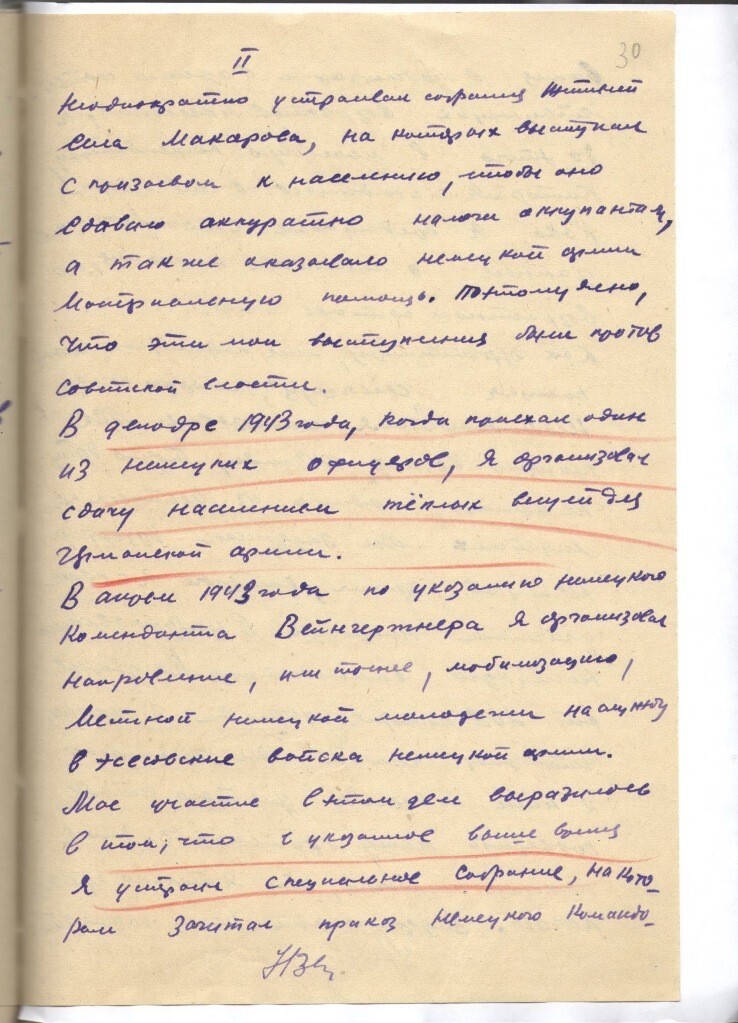 30
II
Неоднократно устраивал собрания жителей
села Макарова, на которых выступал
с призывом к населению, чтобы оно
сдавало аккуратно налоги оккупантам,
а также оказывало немецкой армии
материальную помощь. Поэтому ясно,
что эти мои выступления были против
советской власти.
В декабре 1943 года, когда приехал один
из немецких офицеров, я организовал
сдачу населением тёплых вещей для
германской армии.
В апреле 1943 года по указанию немецкого
коменданта Вейнгержнера я организовал
направление, или точнее, мобилизацию,
местной немецкой молодежи на службу
в эсесовские войска немецкой армии.
Мое участие в этом деле выразилось
в том, что в указанное выше время
я устроил специальное собрание, на кото-
ром зачитал приказ немецкого командо-